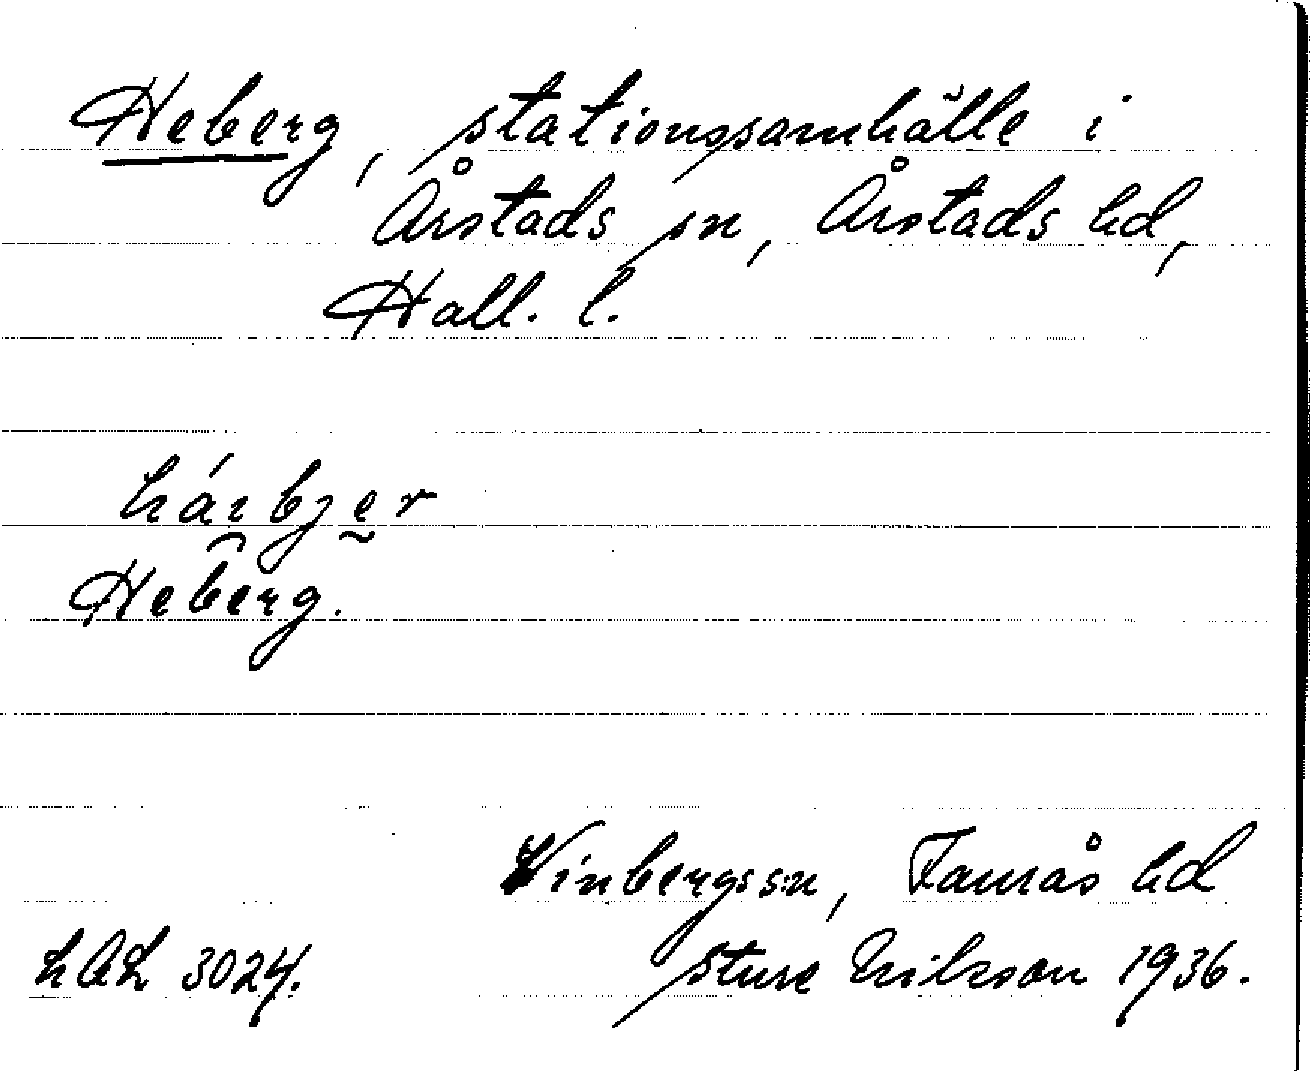 Heberg, stationssamhälle i
Årstads sn, Årstads hd,
Hall. l.
Heberg.
Vinbergs sn, Faurås hd
LAL 3024.
Sture Erikson 1936.